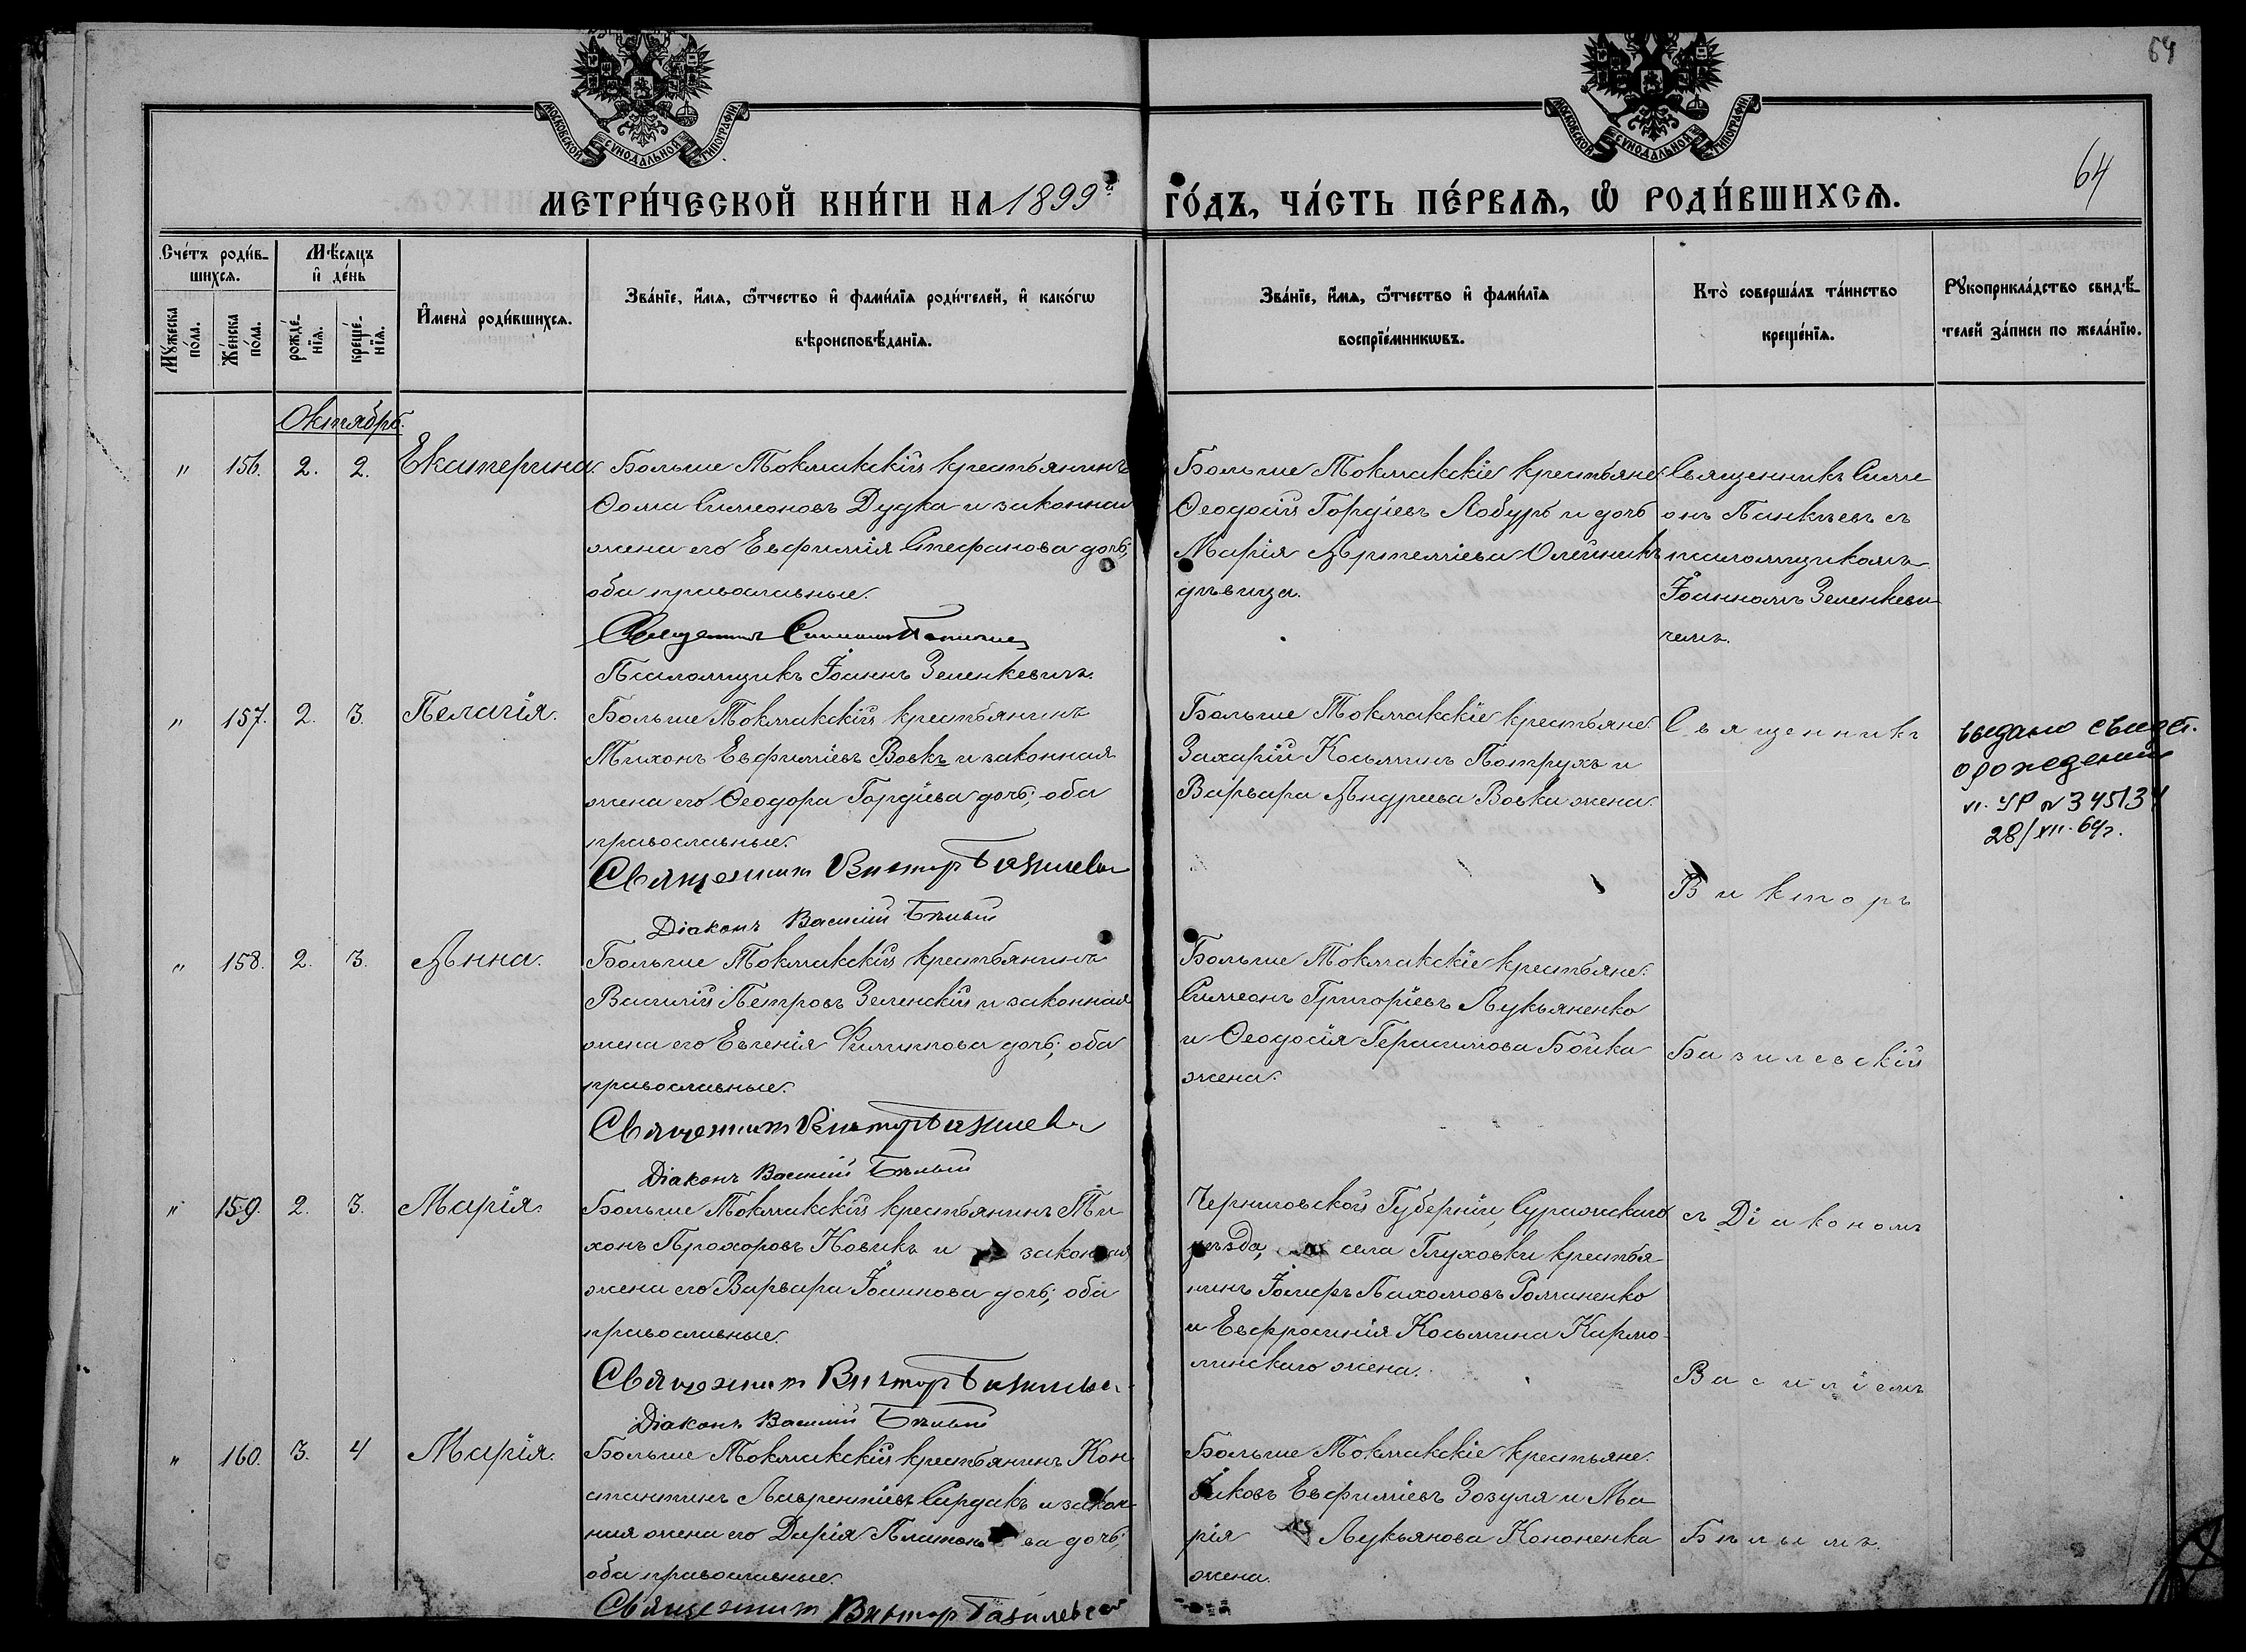 64
МОСКОВСКОЙ СѴНОДАЛЬНОЙ ТИПОГРАФІИ
МОСКОВСКОЙ СѴНОДАЛЬНОЙ ТИПОГРАФІИ
64
МЕТРИ́ЧЕСКОЙ КНИ́ГИ НА 1899й ГО́ДЪ, ЧА́СТЬ ПЕ́РВАѦ, Ѽ РОДИ́ВШИХСѦ.
Сче́тъ роди́в-
шихсѧ.
Мꙋ́жеска по́ла.
Же́нска по́ла.
Мѣ́сѧцъ
и҆ де́нь
рожде́-
нїѧ.
креще́-
нїѧ.
И҆мена̀ роди́вшихсѧ.
Зва́нїе, и҆́мѧ, ѻ҆́тчество и҆ фами́лїѧ роди́телей, и҆ како́гѡ
вѣроисповѣ́данїѧ.
Зва́нїе, и҆́мѧ, ѻ҆́тчество и҆ фами́лїѧ
воспрїе́мникѡвъ.
Кто̀ соверша́лъ та́инство
креще́нїѧ.
Рꙋкоприкла́дство свидѣ́-
телей за́писи по жела́нїю.
Октябрь.
" 156. 2. 2. Екатерина.
Больше Токмакскій крестьянинъ
Ѳома Симеоновъ Дудка и законная
жена его Евфимія Стефанова дочь;
оба православные.
Священникъ Симеонъ Панкѣевъ
Псаломщикъ Іоаннъ Зеленкевичъ.
Больше Токмакскіе крестьяне:
Ѳеодосій Гордіевъ Лобуръ и дочь
Марія Артеміева Олейникъ
дѣвица.
Священникъ Симе
онъ Панкѣевъ съ
псаломщикомъ
Іоанномъ Зеленкеви
чемъ.
" 157. 2. 3. Пелагія.
Больше Токмакскій крестьянинъ
Тихонъ Евфиміевъ Вовкъ и законная
жена его Ѳеодора Гордіева дочь; оба
православные.
Священникъ Викторъ Базилевскій
Діаконъ Василій Бѣлый
Больше Токмакскіе крестьяне:
Захарій Косьминъ Потрухъ и
Варвара Андреева Вовка жена.
Священникъ
выдано свидет.
о рождении
УР № 345134
28/XII-64г.
Викторъ
" 158. 2. 3. Анна.
Больше Токмакскій крестьянинъ
Василій Петровъ Зеленскій и законная
жена его Евгенія Филиппова дочь; оба
православные.
Священникъ Викторъ Базилевскій
Діаконъ Василій Бѣлый
Больше Токмакскіе крестьяне:
Симеонъ Григоріевъ Лукьяненко
и Ѳеодосія Герасимова Бойка
жена.
Базилевскій
" 159. 2. 3. Марія.
Больше Токмакскій крестьянинъ Ти
хонъ Прохоровъ Новикъ и законная
жена его Варвара Іоаннова дочь; оба
православные.
Священникъ Викторъ Базилевскій
Діаконъ Василій Бѣлый
Черниговской Губерніи, Суражскаго
уѣзда, села Глуховки крестья
нинъ Іосифъ Пахомовъ Романенко
и Евфросинія Косьмина Кармо-
линскаго жена.
съ Діакономъ
Василіемъ
" 160. 3. 4 Марія.
Больше Токмакскій крестьянинъ Кон
стантинъ Лаврентіевъ Сардакъ и закон-
ная жена его Дарія Платонова дочь;
оба православные.
Священникъ Викторъ Базилевскій
Больше Токмакскіе крестьяне:
Іаковъ Евфиміевъ Зозуля и Ма
рія Лукьянова Кононенка
жена.
Бѣлымъ.